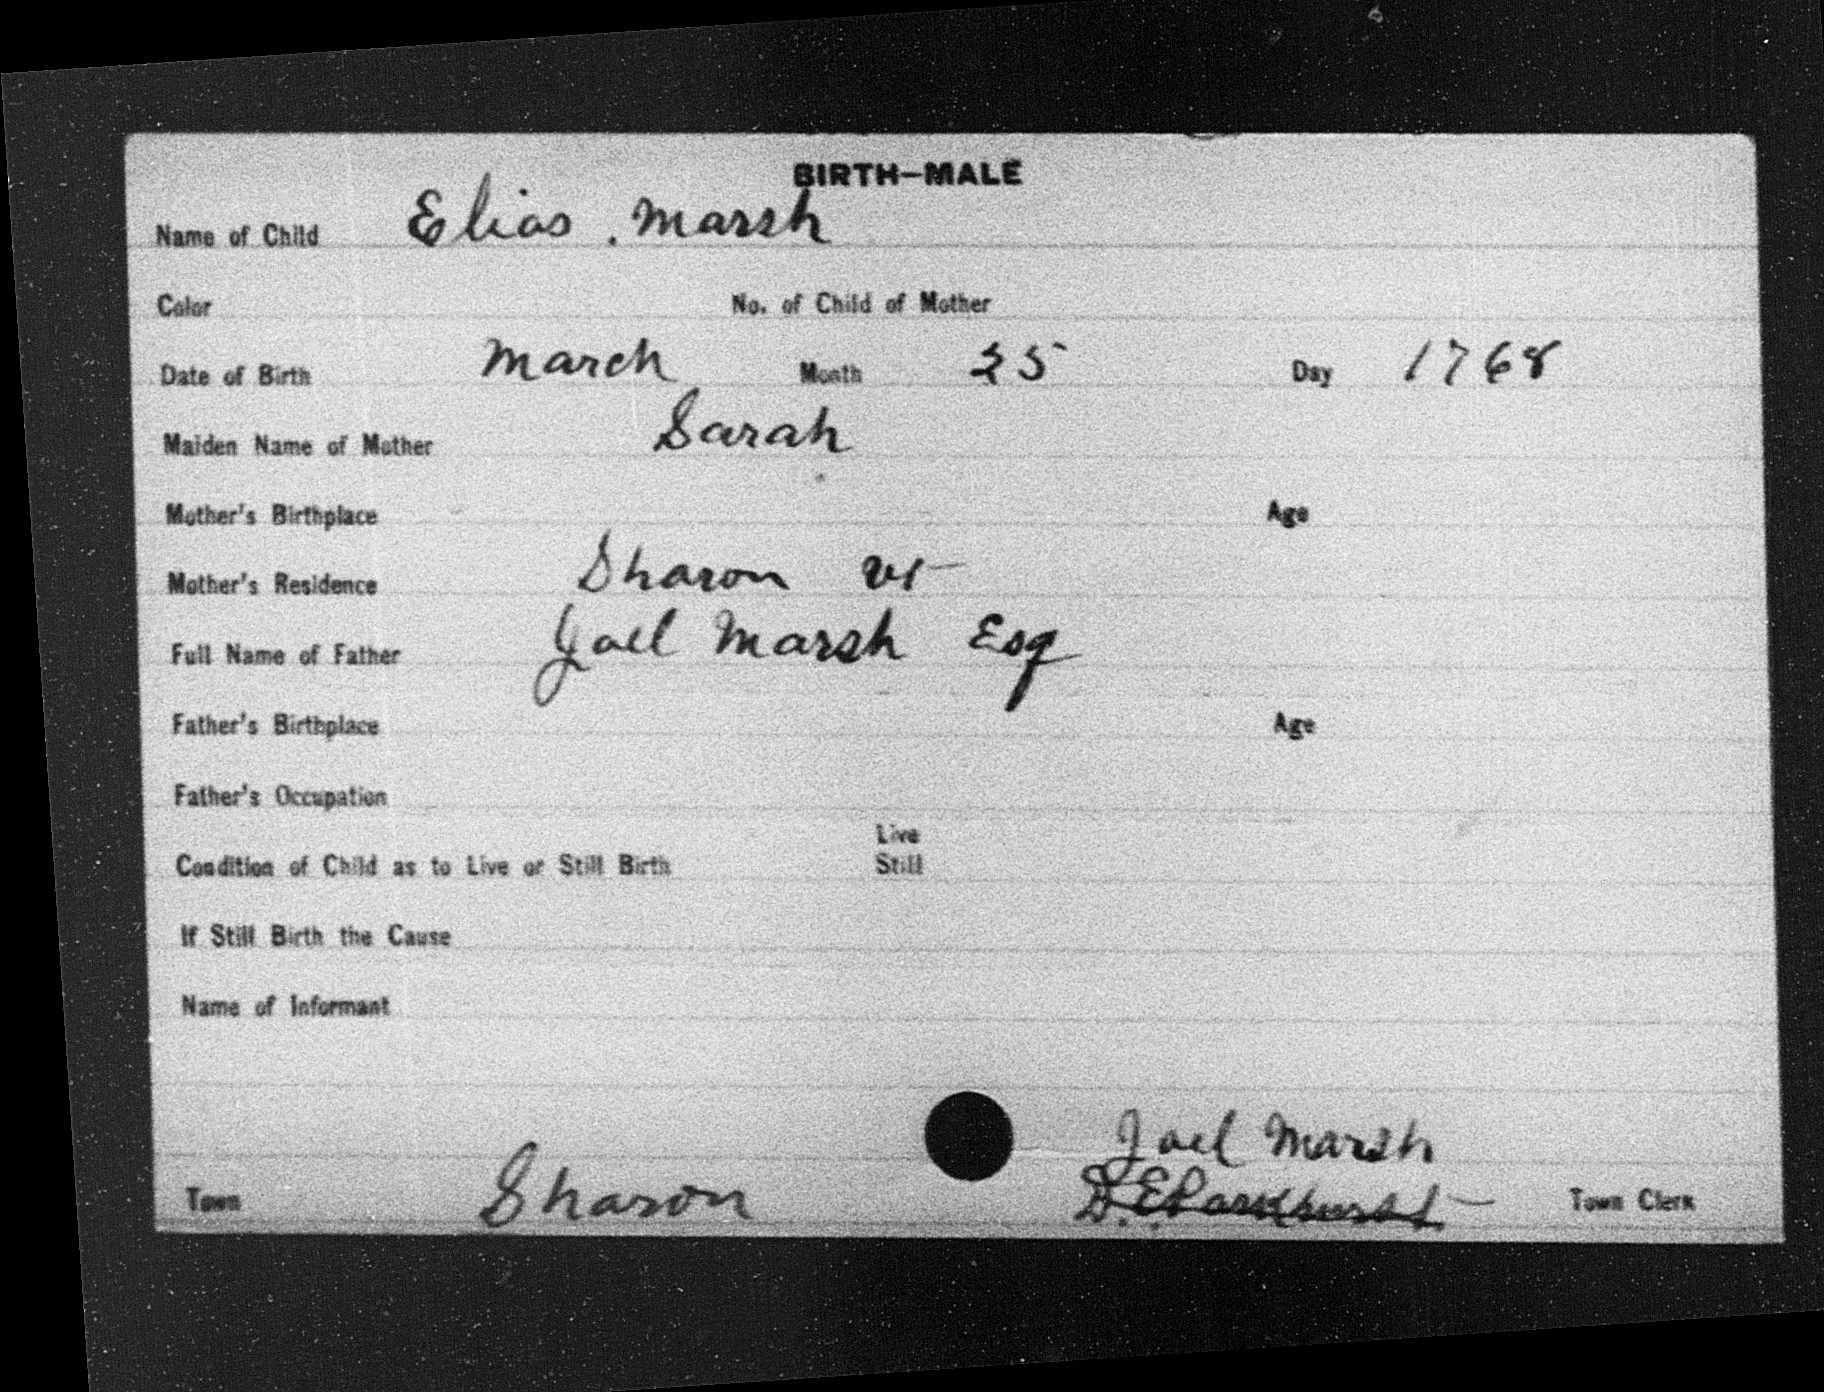 BIRTH—MALE
Name of Child Elias . Marsh
Color No. of Child of Mother
Date of Birth March Month 25 Day 1768
Maiden Name of Mother Sarah
Mother's Birthplace Age
Mother's Residence Sharon Vt
Full Name of Father Joel Marsh Esq
Father's Birthplace Age
Father's Occupation
Live
Condition of Child as to Live or Still Birth Still
If Still Birth the Cause
Name of Informant
Joel Marsh
Town Sharon D. E. Parkhurst Town Clerk